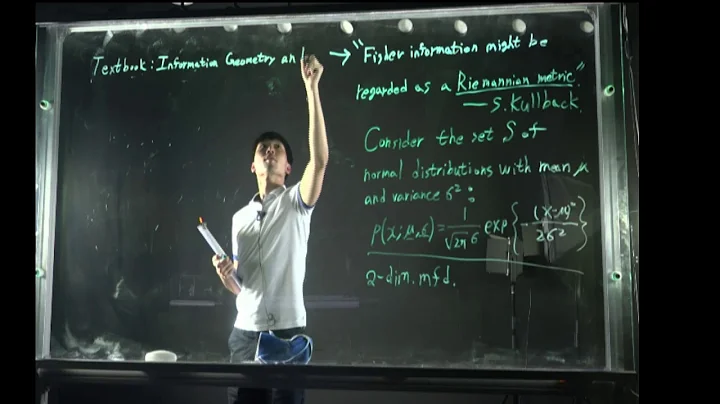 Textbook: Information Geometry an
→ "Fisher information might be
regarded as a Riemannian metric"
— S. Kullback.
Consider the set S of
normal distributions with mean μ
and variance σ²:
p(x; μ, σ) = 1/√2π σ exp { - (x-μ)²/2σ² }
2-dim. mfd.